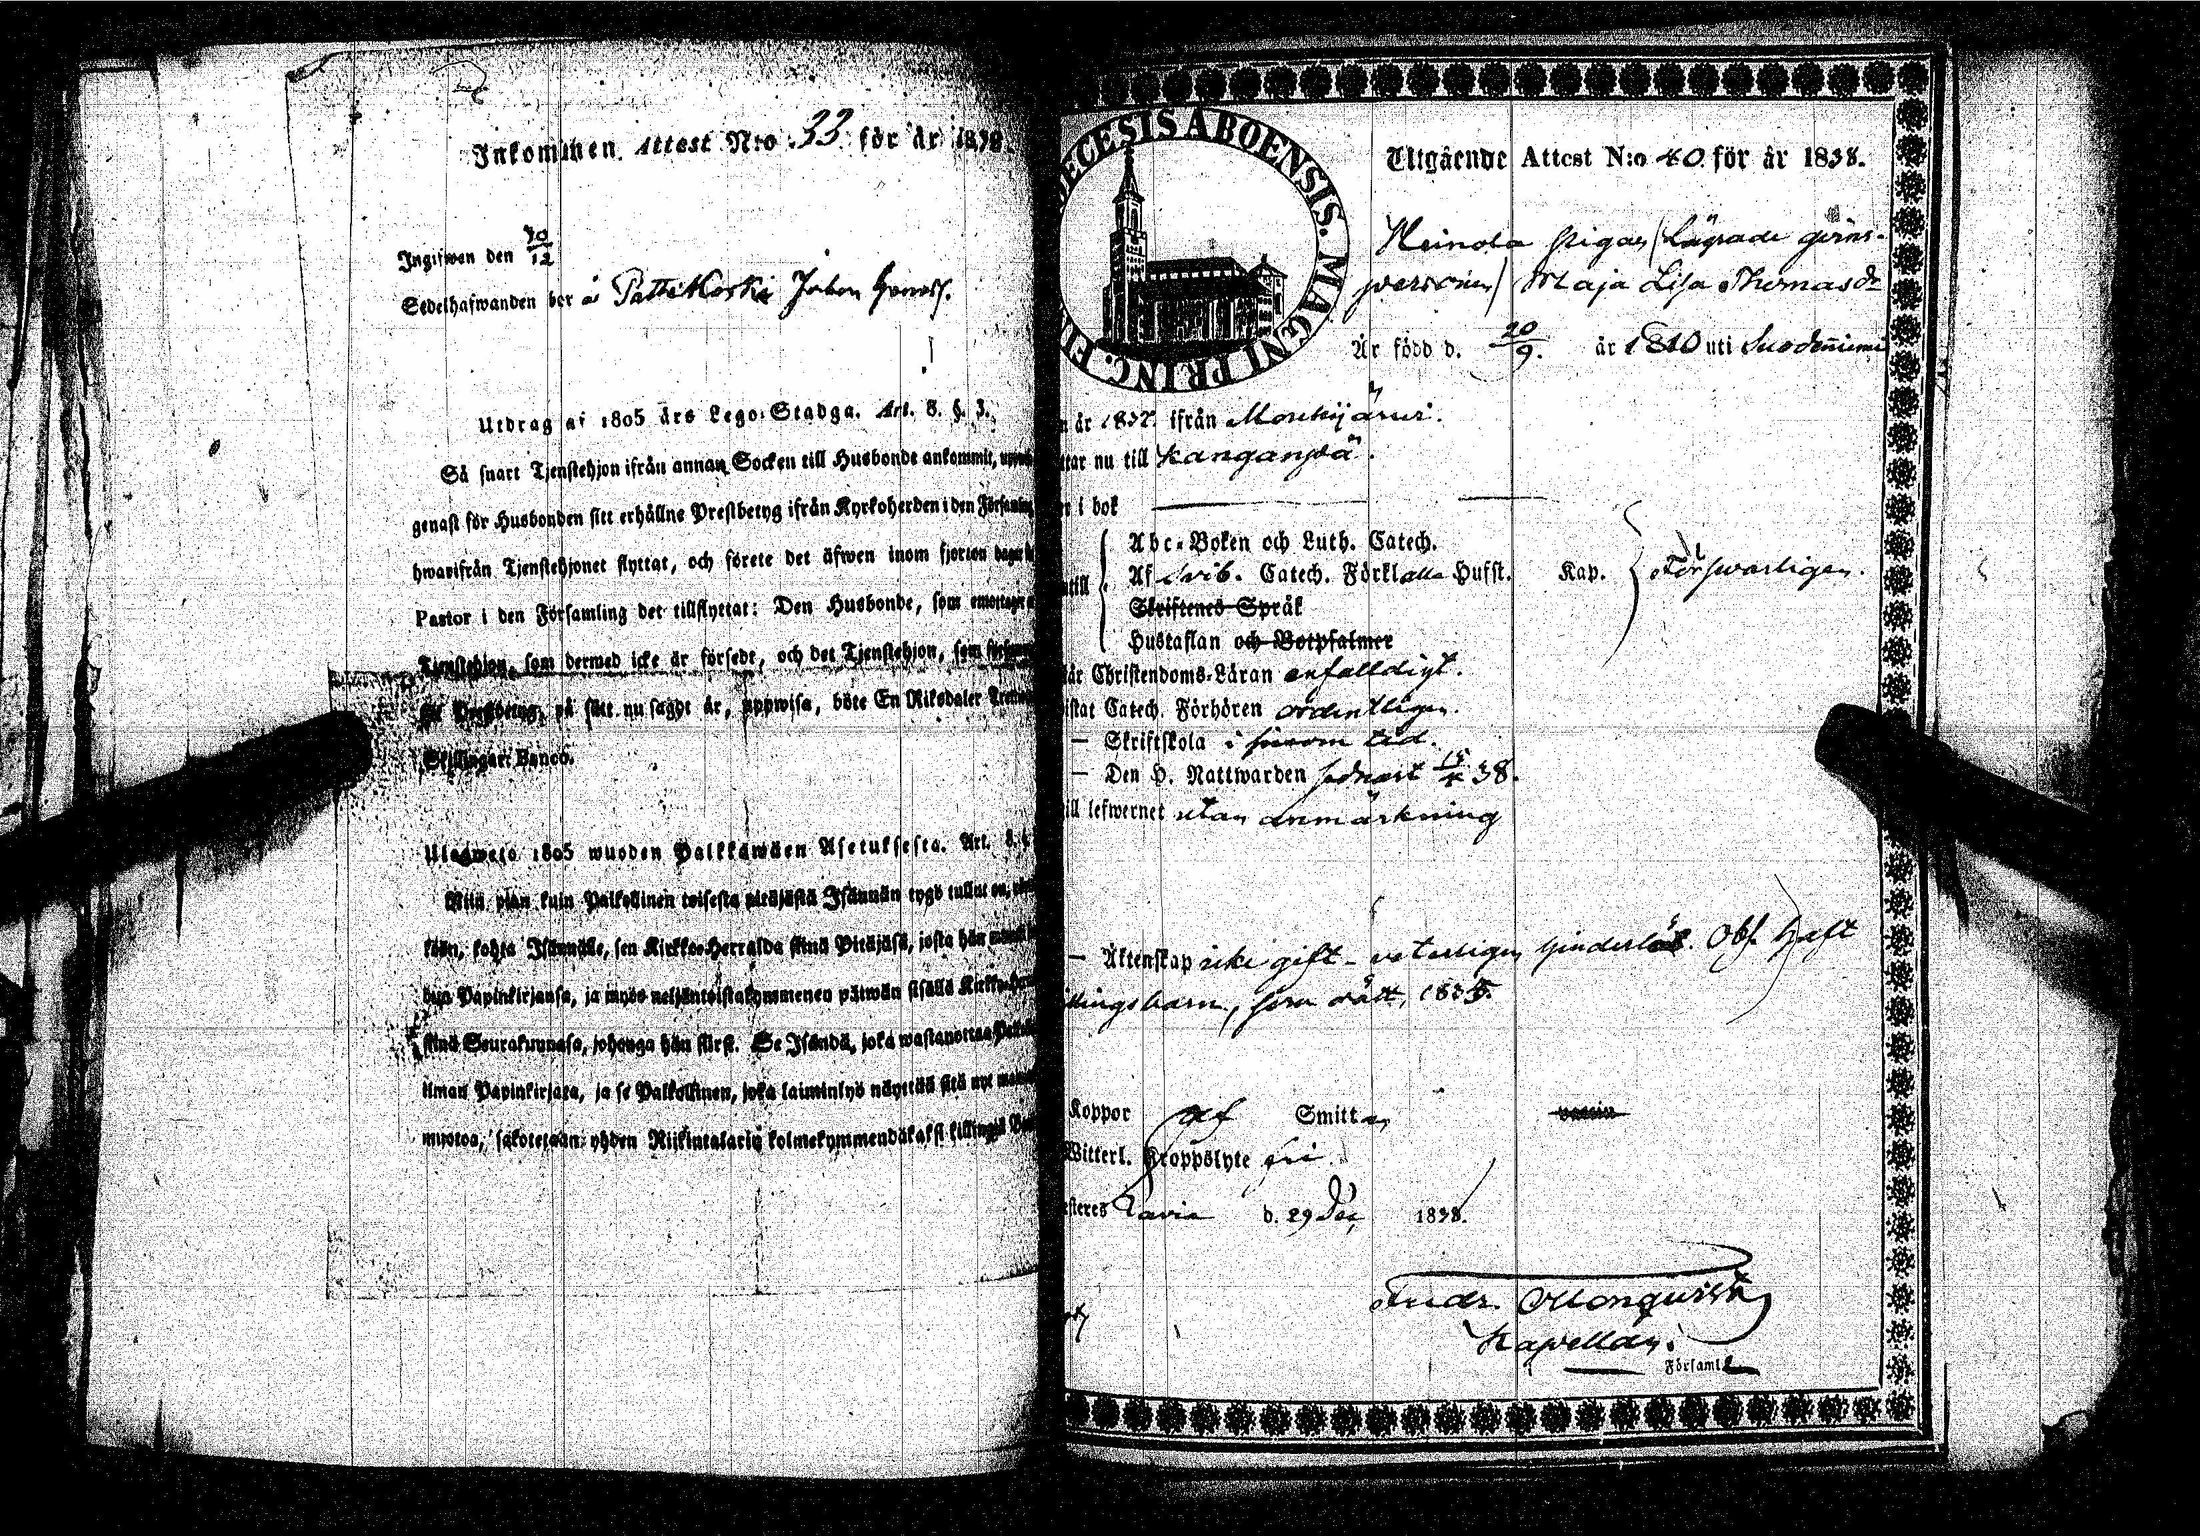 Inkommen Attest N:o 33 för år 1838.
Ingifwen den 30/12
Sedelhafwanden bor å Pattikoski Johan
Utdrag af 1805 års Lego-Stadga. Art. 8. §. 3.
Så snart Tjenstehjon ifrån annan Socken till Husbonde ankommit,
genast för Husbonden sitt erhållne Prestbetyg ifrån Kyrkoherden i den Församling
hwarifrån Tjenstehjonet flyttat, och förete det äfwen inom fjorton dagar
Pastor i den Församling det tillflyttat: Den Husbonde, som emottager
Tjenstehjon, som dermed icke är försedt, och det Tjenstehjon, som
Prestbetyg, på sätt nu sagdt är, uppwisa, böte En Riksdaler
Skillingar Banco.
Ulosweto 1805 wuoden Palkkawäen Asetuksesta. Art. 8. §.
Niin pian kuin Palkollinen toisesta pitäjästä Isännän tygö tullut on,
kohta Isännälle, sen Kirkko-Herralda siinä Pitäjäsä, josta hän
Papinkirjansa, ja myös neljäntoistakymmenen päiwän sisällä
siinä Seurakunnasa, johonga hän siirsi. Se Isändä, joka wastanottaa
ilman Papinkirjata, ja se Palkollinen, joka laiminlyö näyttää sitä nyt
muotoa, sakotetaan yhden Riikintalarin kolmekymmendäkaksi killingiä
DECESIS ABOENSIS. MAGNI PRINC. FI
Utgående Attest N:o 40 för år 1838.
Heinola pigan (Lägrade qvins-
person) Maja Lisa Thomasdr
Är född d. 20/9. år 1810 uti Suodenniemi
år 1837. ifrån Mouhijärvi.
tar nu till Kangansbä.
i bok
Abc-Boken och Luth. Catech.
Af Svib. Catech. Förkl alla Hufst. Kap. Förswarligen.
Skriftenes Språk
Hustaflan och Botpsalmer
Christendoms-Läran enfalldigt.
istat Catech. Förhören ordentligen.
— Skriftskola i sinom tid.
— Den H. Nattwarden sednast 15/4 38.
ill lefwernet utan anmärkning
— Äktenskap icke gift - veterligen hinderlös. Obs. haft
llingsbarn, sora rätt, 1835.
Koppor af Smittan
Witterl. Kroppslyte fri
steres Lavia d. 29 Dec 1838.
Fredr. Monqvist
Kapellan.
Församl